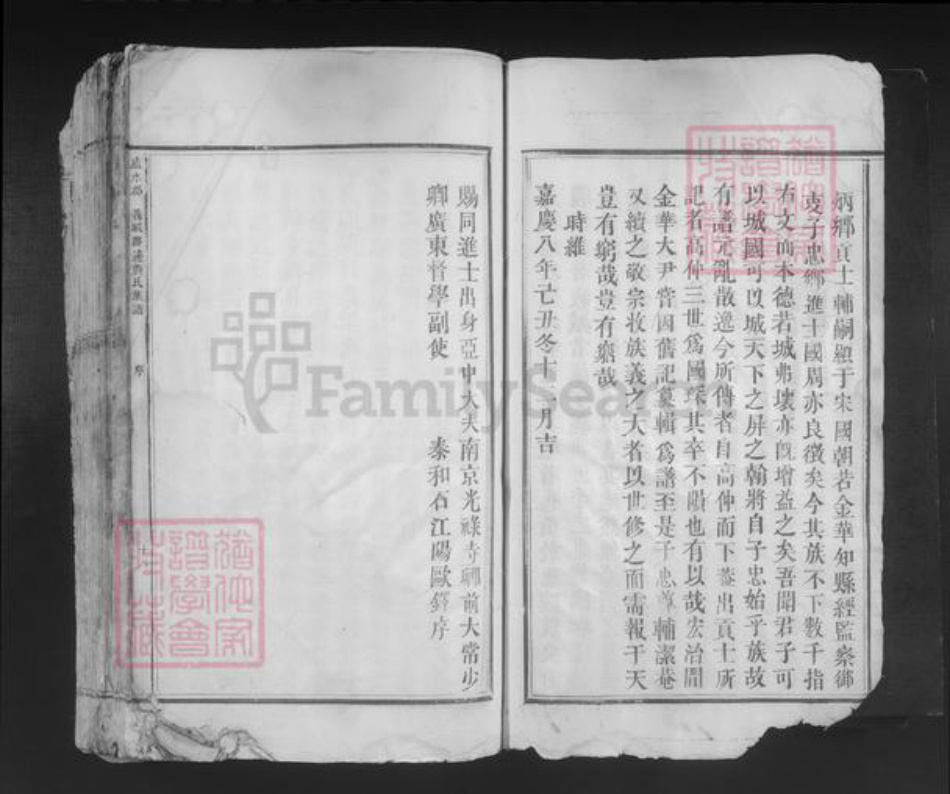 炳鄉貢士輔嗣顯于宋國朝若金華知縣經監察御
史子忠鄉進士國周亦良徵矣今其族不下數千指
右文而本德若城弗壞亦旣增益之矣吾聞君子可
以城國可以城天下之屏之翰將自子忠始乎族故
有譜元亂散逸今所傳者自高仲而下蓋出貢士所
記者高仲三世爲國琛其卒不隕也有以哉宏治間
金華大尹嘗因舊記纂輯爲譜至是子忠尊輔潔菴
又續之敬宗收族義之大者以世修之而需報于天
豈有窮哉豈有窮哉
時維
嘉慶八年己丑冬十二月吉
賜同進士出身亞中大夫南京光祿寺卿前大常少
卿廣東督學副使 泰和石江陽歐鐸序
序
FamilySearch